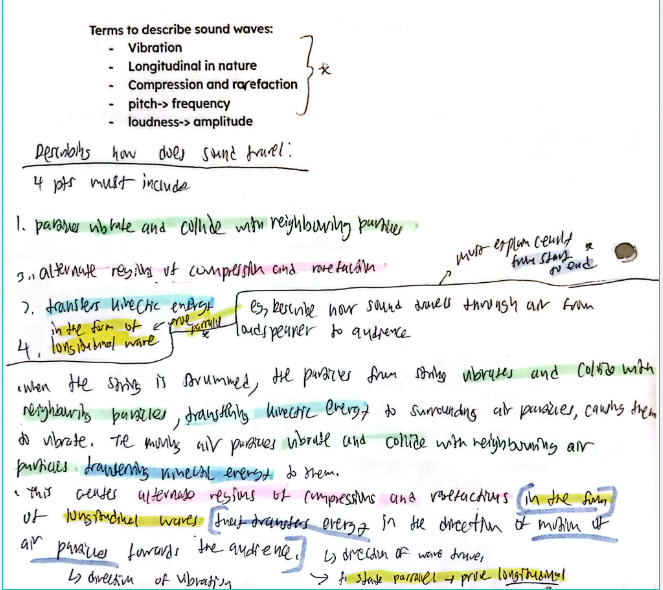 Terms to describe sound waves:
- Vibration
- Longitudinal in nature
- Compression and rarefaction
- pitch-> frequency
- loudness-> amplitude
*
Describing how does sound travel:
4 pts must include
1. particles vibrate and collide with neighbouring particles
3. alternate regions of compression and rarefaction
must explain
from start *
to end
2. transfers kinetic energy
in the form of ← prove parallel *
4. longitudinal wave
eg, Describe how sound travels through air from
loudspeaker to audience
• when the string is strummed, the particles from string vibrates and collide with
neighbouring particles, transferring kinetic energy to surrounding air particles, causing them
to vibrate. The moving air particles vibrate and collide with neighbouring air
particles transferring kinetic energy to them.
• This creates alternate regions of compressions and rarefactions [in the form
of longitudinal waves [that transfers energy in the direction of motion of
air particles towards the audience.]
↳ direction of wave travel
↳ direction of vibration
→ to state parallel → prove longitudinal